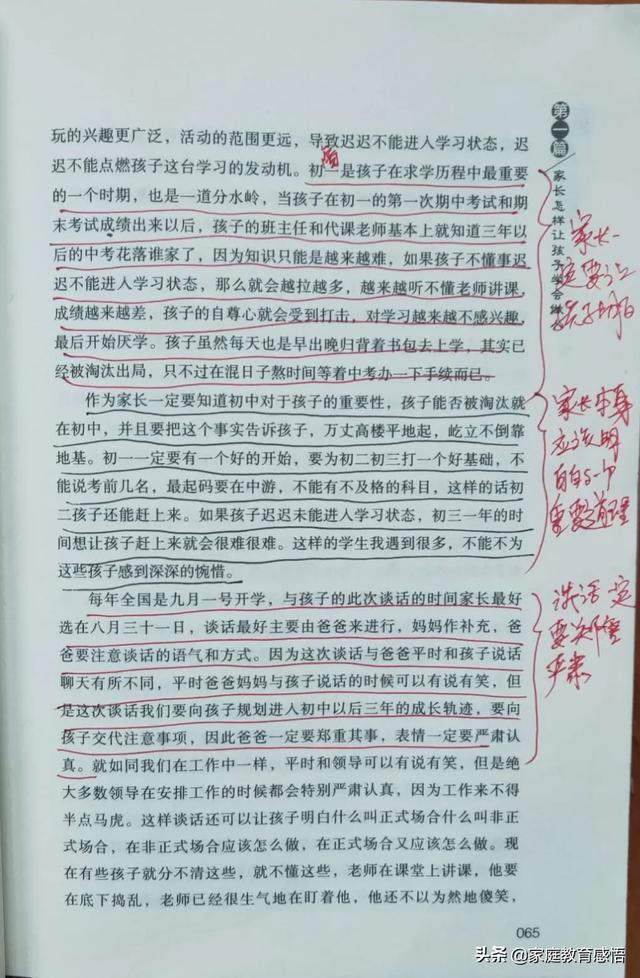 玩的兴趣更广泛，活动的范围更远，导致迟迟不能进入学习状态，迟
迟不能点燃孩子这台学习的发动机。初一是孩子在求学历程中最重要
的一个时期，也是一道分水岭，当孩子在初一的第一次期中考试和期
末考试成绩出来以后，孩子的班主任和代课老师基本上就知道三年以
后的中考花落谁家了，因为知识只能是越来越难，如果孩子不懂事迟
迟不能进入学习状态，那么就会越拉越多，越来越听不懂老师讲课，
成绩越来越差，孩子的自尊心就会受到打击，对学习越来越不感兴趣，
最后开始厌学。孩子虽然每天也是早出晚归背着书包去上学，其实已
经被淘汰出局，只不过在混日子熬时间等着中考办一下手续而已。
作为家长一定要知道初中对于孩子的重要性，孩子能否被淘汰就
在初中，并且要把这个事实告诉孩子，万丈高楼平地起，屹立不倒靠
地基。初一一定要有一个好的开始，要为初二初三打一个好基础，不
能说考前几名，最起码要在中游，不能有不及格的科目，这样的话初
二孩子还能赶上来。如果孩子迟迟未能进入学习状态，初三一年的时
间想让孩子赶上来就会很难很难。这样的学生我遇到很多，不能不为
这些孩子感到深深的惋惜。
每年全国是九月一号开学，与孩子的此次谈话的时间家长最好
选在八月三十一日，谈话最好主要由爸爸来进行，妈妈作补充，爸
爸要注意谈话的语气和方式。因为这次谈话与爸爸平时和孩子说话
聊天有所不同，平时爸爸妈妈与孩子说话的时候可以有说有笑，但
是这次谈话我们要向孩子规划进入初中以后三年的成长轨迹，要向
孩子交代注意事项，因此爸爸一定要郑重其事，表情一定要严肃认
真。就如同我们在工作中一样，平时和领导可以有说有笑，但是绝
大多数领导在安排工作的时候都会特别严肃认真，因为工作来不得
半点马虎。这样谈话还可以让孩子明白什么叫正式场合什么叫非正
式场合，在非正式场合应该怎么做，在正式场合又应该怎么做。现
在有些孩子就分不清这些，就不懂这些，老师在课堂上讲课，他要
在底下捣乱，老师已经很生气地在盯着他，他还不以为然地傻笑，
第一篇
家长怎样让孩子学会
家长一
定要让
孩子明白
家长本身
应该明
白的一个
重要道理
谈话一定
要
严肃
065
头条 @家庭教育感悟